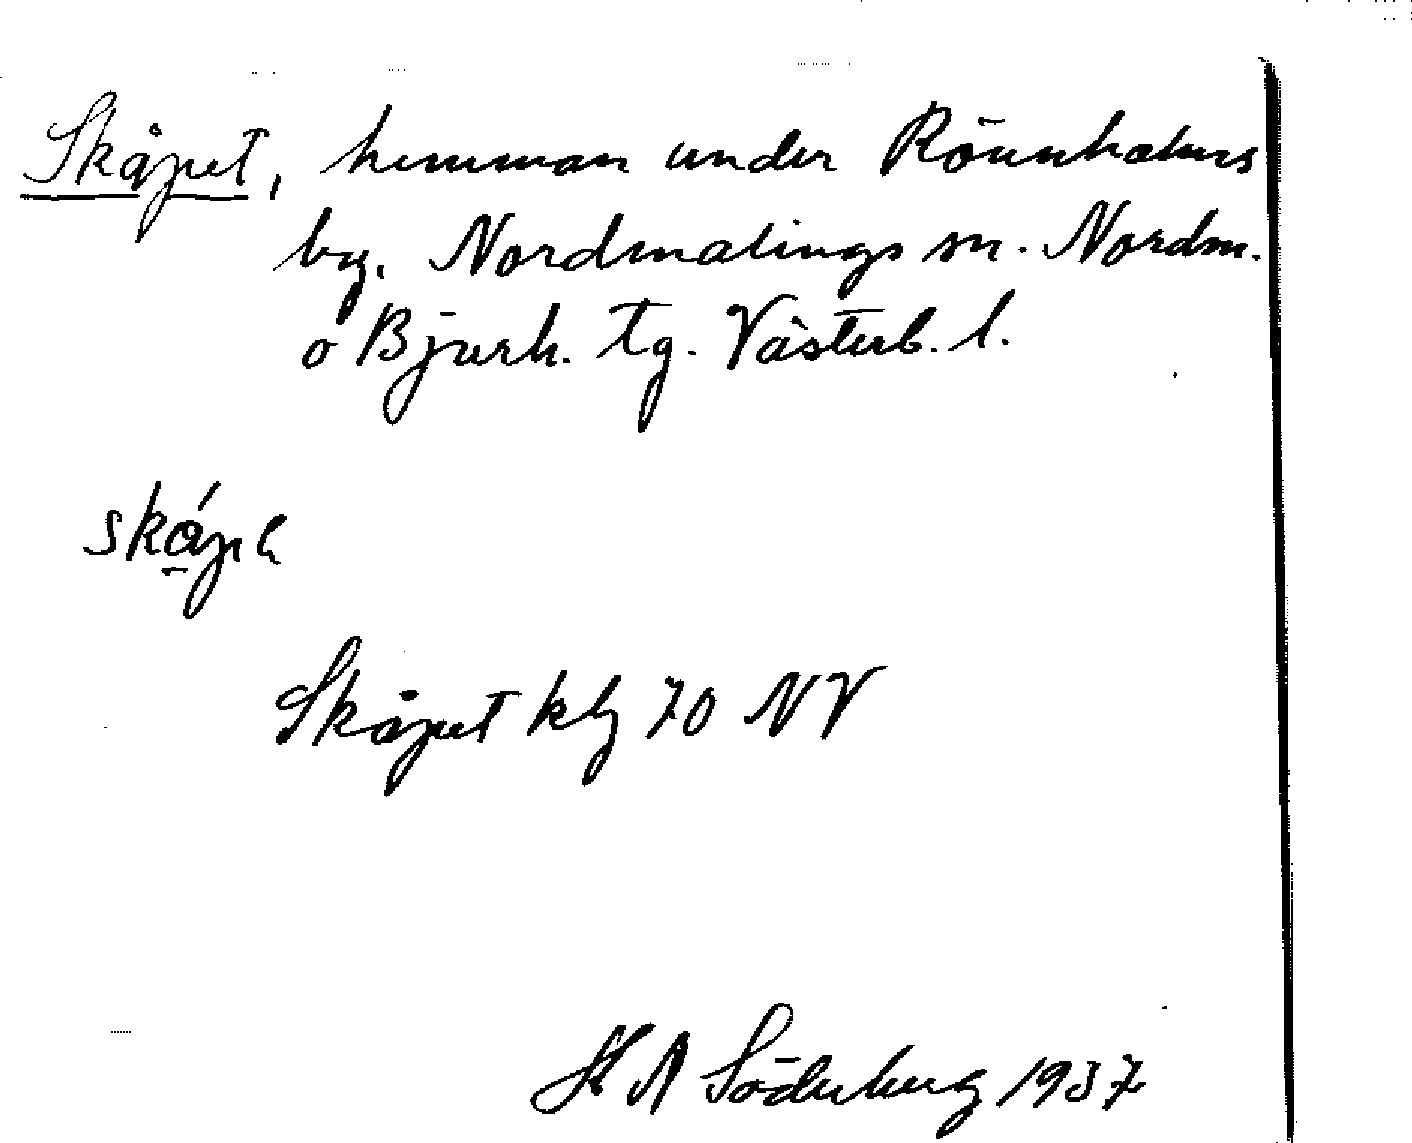 Skåpet, hemman under Rönnholms
by. Nordmalings sn. Nordm.
o Bjurh. tg. Västerb. l.
Skåpet kbg 70 NV
H A Söderberg 1937